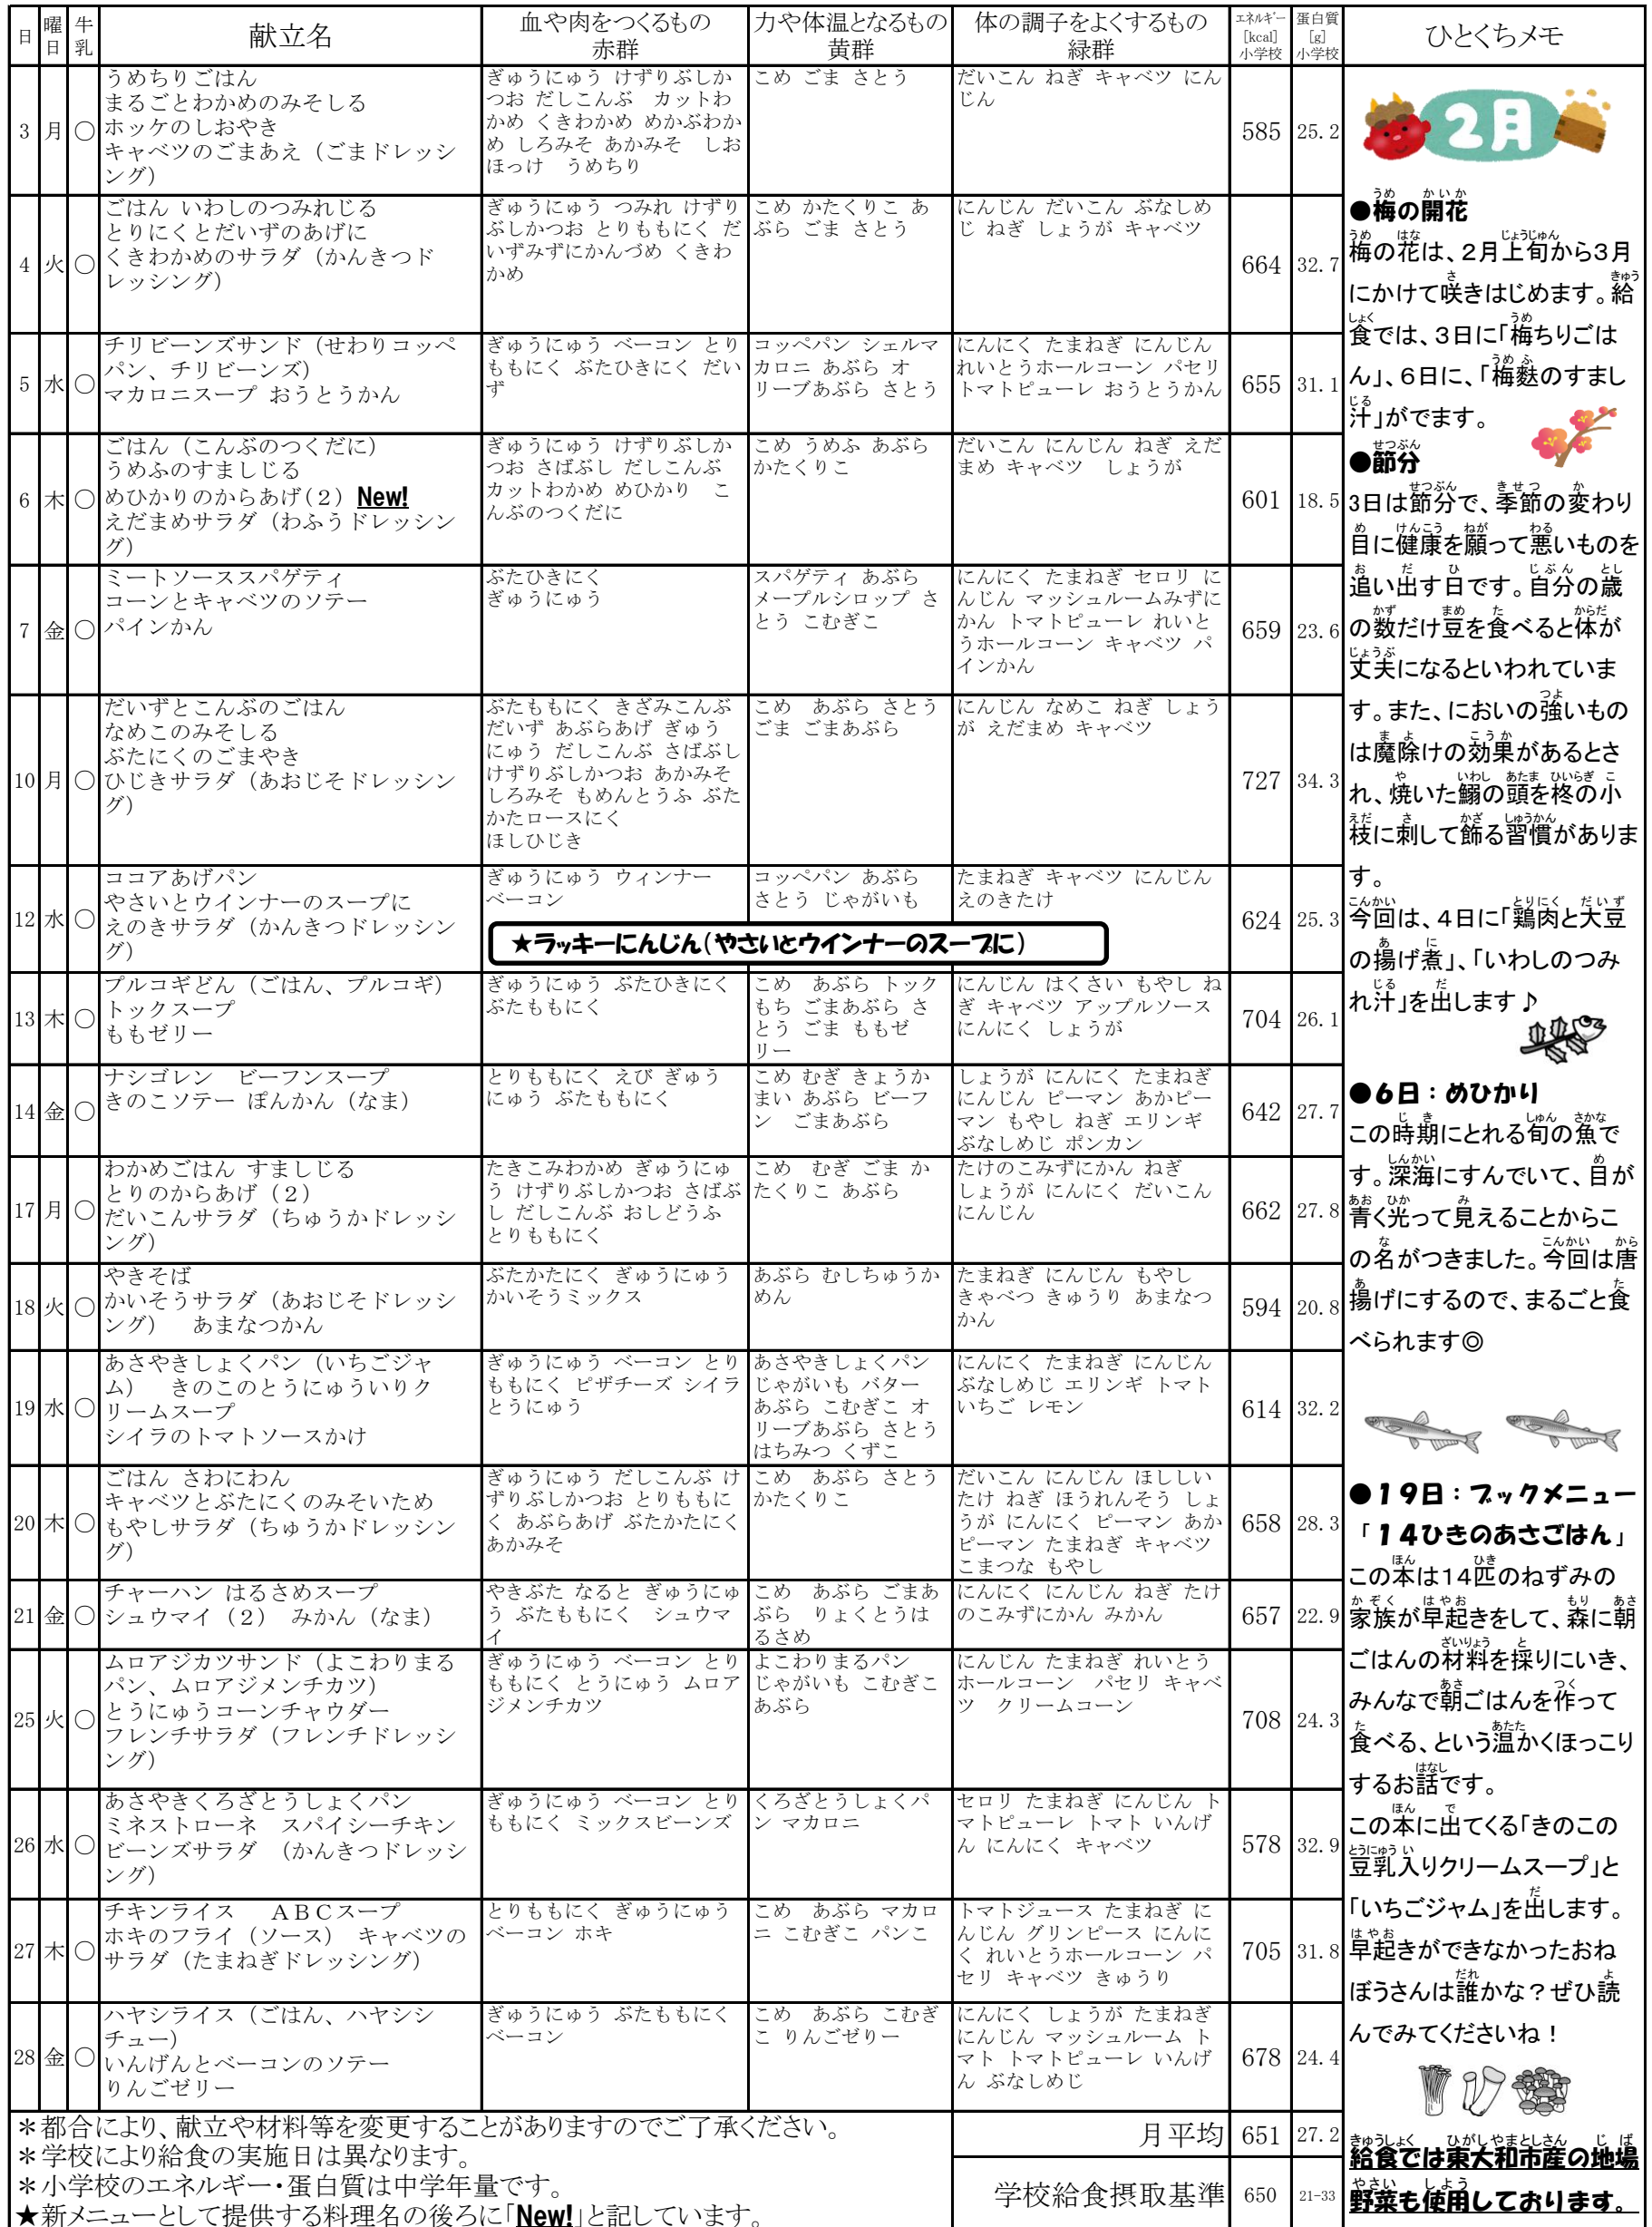 日 曜日 牛乳 献立名 血や肉をつくるもの 赤群 力や体温となるもの 黄群 体の調子をよくするもの 緑群 エネルギー [kcal] 小学校 蛋白質 [g] 小学校 ひとくちメモ
3 月 ○
うめちりごはん
まるごとわかめのみそしる
ホッケのしおやき
キャベツのごまあえ（ごまドレッシ
ング）
ぎゅうにゅう けずりぶしか
つお だしこんぶ　カットわ
かめ くきわかめ めかぶわか
め しろみそ あかみそ　しお
ほっけ　うめちり
こめ ごま さとう
だいこん ねぎ キャベツ にん
じん
585 25.2
4 火 ○
ごはん いわしのつみれじる
とりにくとだいずのあげに
くきわかめのサラダ（かんきつド
レッシング）
ぎゅうにゅう つみれ けずり
ぶしかつお とりももにく だ
いずみずにかんづめ くきわ
かめ
こめ かたくりこ あ
ぶら ごま さとう
にんじん だいこん ぶなしめ
じ ねぎ しょうが キャベツ
664 32.7
5 水 ○
チリビーンズサンド（せわりコッペ
パン、チリビーンズ）
マカロニスープ おうとうかん
ぎゅうにゅう ベーコン とり
ももにく ぶたひきにく だい
ず
コッペパン シェルマ
カロニ あぶら オ
リーブあぶら さとう
にんにく たまねぎ にんじん
れいとうホールコーン パセリ
トマトピューレ おうとうかん
655 31.1
6 木 ○
ごはん（こんぶのつくだに）
うめふのすましじる
めひかりのからあげ(２) New!
えだまめサラダ（わふうドレッシン
グ）
ぎゅうにゅう けずりぶしか
つお さばぶし だしこんぶ
カットわかめ めひかり　こ
んぶのつくだに
こめ うめふ あぶら
かたくりこ
だいこん にんじん ねぎ えだ
まめ キャベツ　しょうが
601 18.5
7 金 ○
ミートソーススパゲティ
コーンとキャベツのソテー
パインかん
ぶたひきにく
ぎゅうにゅう
スパゲティ あぶら
メープルシロップ さ
とう こむぎこ
にんにく たまねぎ セロリ に
んじん マッシュルームみずに
かん トマトピューレ れいと
うホールコーン キャベツ パ
インかん
659 23.6
10 月 ○
だいずとこんぶのごはん
なめこのみそしる
ぶたにくのごまやき
ひじきサラダ（あおじそドレッシン
グ）
ぶたももにく きざみこんぶ
だいず あぶらあげ ぎゅう
にゅう だしこんぶ さばぶし
けずりぶしかつお あかみそ
しろみそ もめんとうふ ぶた
かたロースにく
ほしひじき
こめ　あぶら さとう
ごま ごまあぶら
にんじん なめこ ねぎ しょう
が えだまめ キャベツ
727 34.3
12 水 ○
ココアあげパン
やさいとウインナーのスープに
えのきサラダ（かんきつドレッシン
グ）
ぎゅうにゅう ウィンナー
ベーコン
コッペパン あぶら
さとう じゃがいも
たまねぎ キャベツ にんじん
えのきたけ
624 25.3
★ラッキーにんじん(やさいとウインナーのスープに)
13 木 ○
プルコギどん（ごはん、プルコギ）
トックスープ
ももゼリー
ぎゅうにゅう ぶたひきにく
ぶたももにく
こめ　あぶら トック
もち ごまあぶら さ
とう ごま ももゼ
リー
にんじん はくさい もやし ね
ぎ キャベツ アップルソース
にんにく しょうが
704 26.1
14 金 ○
ナシゴレン　ビーフンスープ
きのこソテー ぽんかん（なま）
とりももにく えび ぎゅう
にゅう ぶたももにく
こめ むぎ きょうか
まい あぶら ビーフ
ン　ごまあぶら
しょうが にんにく たまねぎ
にんじん ピーマン あかピー
マン もやし ねぎ エリンギ
ぶなしめじ ポンカン
642 27.7
17 月 ○
わかめごはん すましじる
とりのからあげ（２）
だいこんサラダ（ちゅうかドレッシ
ング）
たきこみわかめ ぎゅうにゅ
う けずりぶしかつお さばぶ
し だしこんぶ おしどうふ
とりももにく
こめ　むぎ ごま か
たくりこ あぶら
たけのこみずにかん ねぎ
しょうが にんにく だいこん
にんじん
662 27.8
18 火 ○
やきそば
かいそうサラダ（あおじそドレッシ
ング）　あまなつかん
ぶたかたにく ぎゅうにゅう
かいそうミックス
あぶら むしちゅうか
めん
たまねぎ にんじん もやし
きゃべつ きゅうり あまなつ
かん
594 20.8
19 水 ○
あさやきしょくパン（いちごジャ
ム）　きのこのとうにゅういりク
リームスープ
シイラのトマトソースかけ
ぎゅうにゅう ベーコン とり
ももにく ピザチーズ シイラ
とうにゅう
あさやきしょくパン
じゃがいも バター
あぶら こむぎこ オ
リーブあぶら さとう
はちみつ くずこ
にんにく たまねぎ にんじん
ぶなしめじ エリンギ トマト
いちご レモン
614 32.2
20 木 ○
ごはん さわにわん
キャベツとぶたにくのみそいため
もやしサラダ（ちゅうかドレッシン
グ）
ぎゅうにゅう だしこんぶ け
ずりぶしかつお とりももに
く あぶらあげ ぶたかたにく
あかみそ
こめ　あぶら さとう
かたくりこ
だいこん にんじん ほししい
たけ ねぎ ほうれんそう しょ
うが にんにく ピーマン あか
ピーマン たまねぎ キャベツ
こまつな もやし
658 28.3
21 金 ○
チャーハン はるさめスープ
シュウマイ（２） みかん（なま）
やきぶた なると ぎゅうにゅ
う ぶたももにく　シュウマ
イ
こめ　あぶら ごまあ
ぶら　りょくとうは
るさめ
にんにく にんじん ねぎ たけ
のこみずにかん みかん
657 22.9
25 火 ○
ムロアジカツサンド（よこわりまる
パン、ムロアジメンチカツ）
とうにゅうコーンチャウダー
フレンチサラダ（フレンチドレッシ
ング）
ぎゅうにゅう ベーコン とり
ももにく とうにゅう ムロア
ジメンチカツ
よこわりまるパン
じゃがいも こむぎこ
あぶら
にんじん たまねぎ れいとう
ホールコーン　パセリ キャベ
ツ　クリームコーン
708 24.3
26 水 ○
あさやきくろざとうしょくパン
ミネストローネ　スパイシーチキン
ビーンズサラダ　（かんきつドレッシ
ング）
ぎゅうにゅう ベーコン とり
ももにく ミックスビーンズ
くろざとうしょくパ
ン マカロニ
セロリ たまねぎ にんじん ト
マトピューレ トマト いんげ
ん にんにく キャベツ
578 32.9
27 木 ○
チキンライス　ＡＢＣスープ
ホキのフライ（ソース） キャベツの
サラダ（たまねぎドレッシング）
とりももにく ぎゅうにゅう
ベーコン ホキ
こめ　あぶら マカロ
ニ こむぎこ パンこ
トマトジュース たまねぎ に
んじん グリンピース にんに
く れいとうホールコーン パ
セリ キャベツ きゅうり
705 31.8
28 金 ○
ハヤシライス（ごはん、ハヤシシ
チュー）
いんげんとベーコンのソテー
りんごゼリー
ぎゅうにゅう ぶたももにく
ベーコン
こめ　あぶら こむぎ
こ りんごゼリー
にんにく しょうが たまねぎ
にんじん マッシュルーム ト
マト トマトピューレ いんげ
ん ぶなしめじ
678 24.4
＊都合により、献立や材料等を変更することがありますのでご了承ください。
＊学校により給食の実施日は異なります。
＊小学校のエネルギー・蛋白質は中学年量です。
★新メニューとして提供する料理名の後ろに「New!」と記しています。
月平均 651 27.2
学校給食摂取基準 650 21-33
2月
●梅の開花
梅の花は、２月上旬から３月
にかけて咲きはじめます。給
食では、３日に「梅ちりごは
ん」、６日に、「梅麩のすまし
汁」がでます。
●節分
3日は節分で、季節の変わり
目に健康を願って悪いものを
追い出す日です。自分の歳
の数だけ豆を食べると体が
丈夫になるといわれていま
す。また、においの強いもの
は魔除けの効果があるとさ
れ、焼いた鰯の頭を柊の小
枝に刺して飾る習慣がありま
す。
今回は、４日に「鶏肉と大豆
の揚げ煮」、「いわしのつみ
れ汁」を出します♪
●6日：めひかり
この時期にとれる旬の魚で
す。深海にすんでいて、目が
青く光って見えることからこ
の名がつきました。今回は唐
揚げにするので、まるごと食
べられます◎
●19日：ブックメニュー
「14ひきのあさごはん」
この本は14匹のねずみの
家族が早起きをして、森に朝
ごはんの材料を採りにいき、
みんなで朝ごはんを作って
食べる、という温かくほっこり
するお話です。
この本に出てくる「きのこの
豆乳入りクリームスープ」と
「いちごジャム」を出します。
早起きができなかったおね
ぼうさんは誰かな？ぜひ読
んでみてくださいね！
給食では東大和市産の地場
野菜も使用しております。